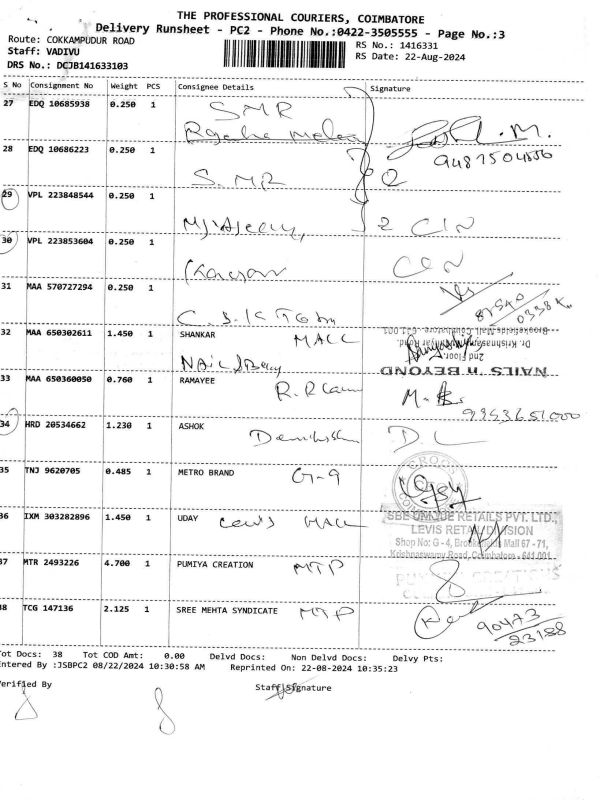 THE PROFESSIONAL COURIERS, COIMBATORE
Delivery Runsheet - PC2 - Phone No.:0422-3505555 - Page No.:3
Route: COKKAMPUDUR ROAD
Staff: VADIVU
DRS No.: DCJB141633103
RS No.: 1416331
RS Date: 22-Aug-2024
S No Consignment No Weight PCS Consignee Details Signature
27 EDQ 10685938 0.250 1 SMR
28 EDQ 10686223 0.250 1
9487504556
S.MR
29 VPL 223848544 0.250 1
2 CIN
30 VPL 223853604 0.250 1
31 MAA 570727294 0.250 1
32 MAA 650302611 1.450 1 SHANKAR MALL
Dr. Krishnasamy Road,
Brookefields Mall, Coimbatore - 641 001
2nd Floor,
NAILS 'n BEYOND
33 MAA 650360050 0.760 1 RAMAYEE
9953651000
34 HRD 20534662 1.230 1 ASHOK
D. L
35 TNJ 9620705 0.485 1 METRO BRAND G-9
36 IXM 303282896 1.450 1 UDAY Levi's MALL
SBE UNIQUE RETAILS PVT. LTD.,
LEVIS RETAIL DIVISION
Shop No: G - 4, Brookefields Mall 67 - 71,
Krishnaswamy Road, Coimbatore - 641 001
37 MTR 2493226 4.700 1 PUMIYA CREATION MTP
38 TCG 147136 2.125 1 SREE MEHTA SYNDICATE MTP
90473
23188
Tot Docs: 38 Tot COD Amt: 0.00 Delvd Docs: Non Delvd Docs: Delvy Pts:
Entered By :JSBPC2 08/22/2024 10:30:58 AM Reprinted On: 22-08-2024 10:35:23
Verified By Staff Signature